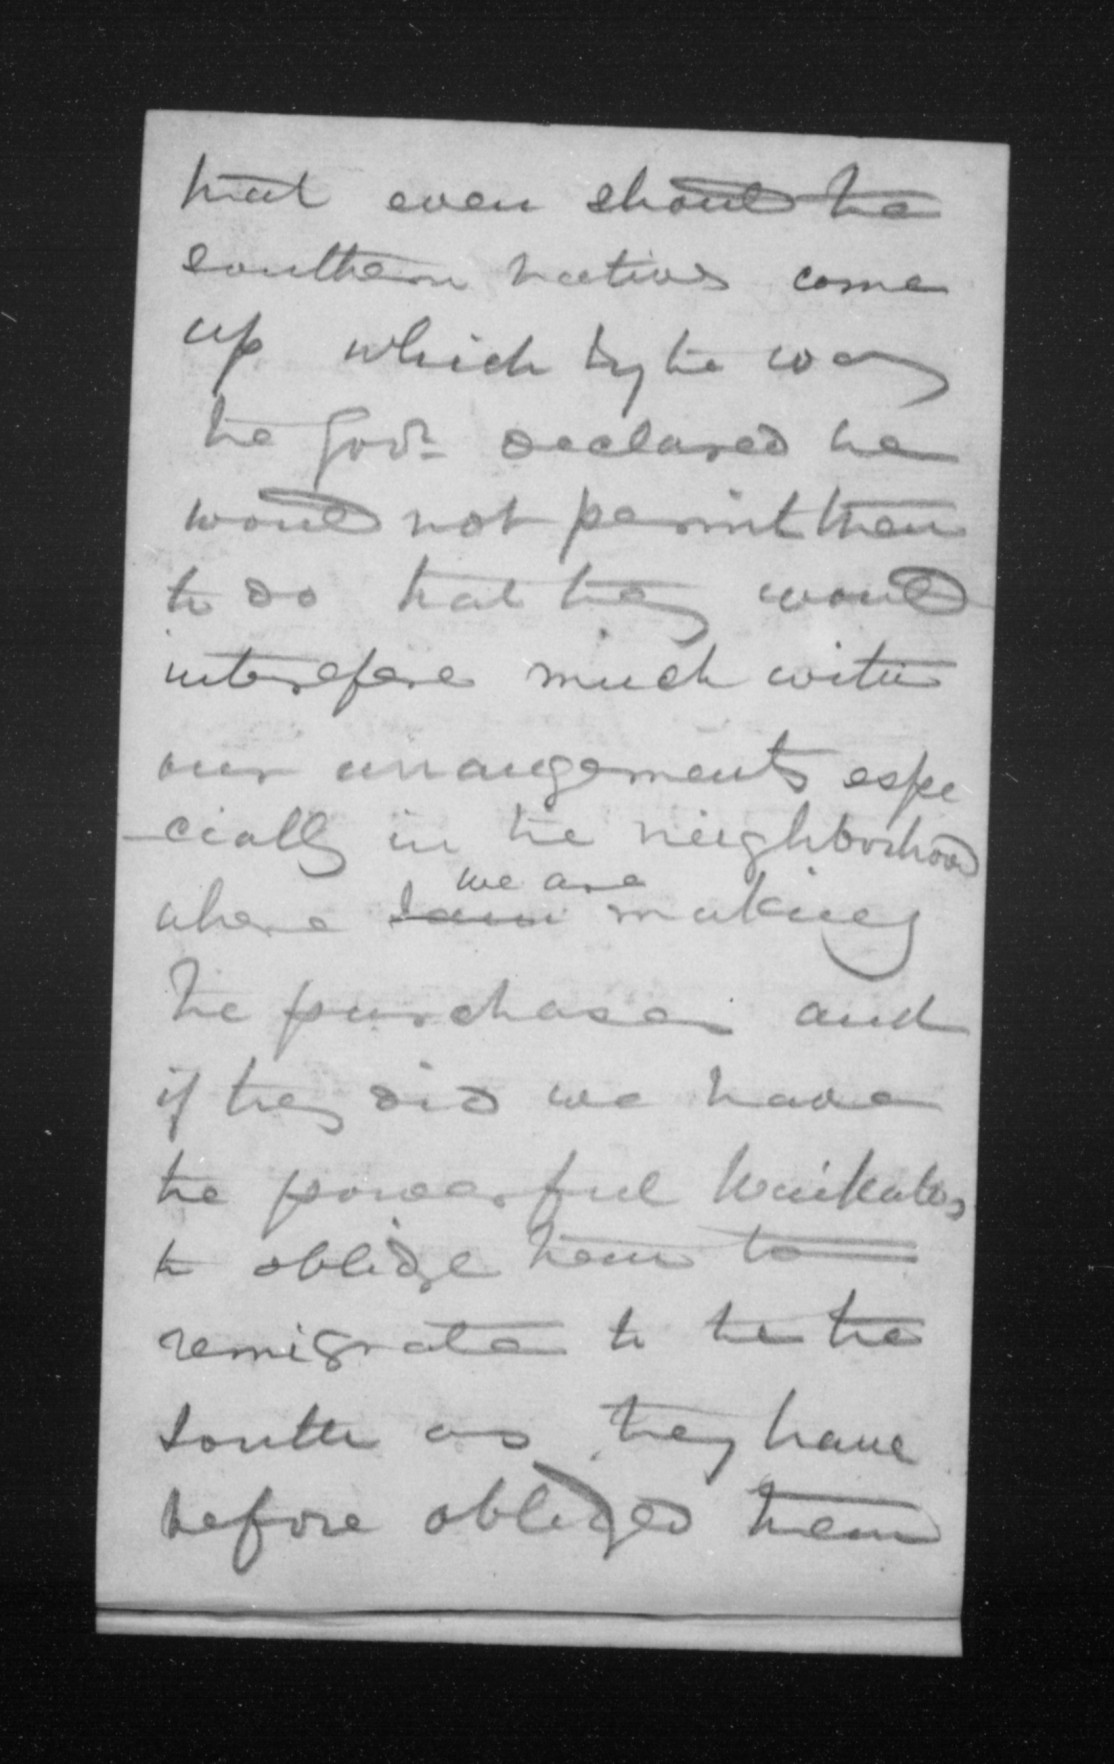 that even should the
southern natives come
up which by the way
the Govr. declared he
would not permit them
to do that they would
interefere much with
our arrangements espe
-cially in the neighborhood
where I am we are making
the purchases and
if they did we have
the powerful Waikatos
to obledge them to
remigrate to the the
South as they have
before obledged them